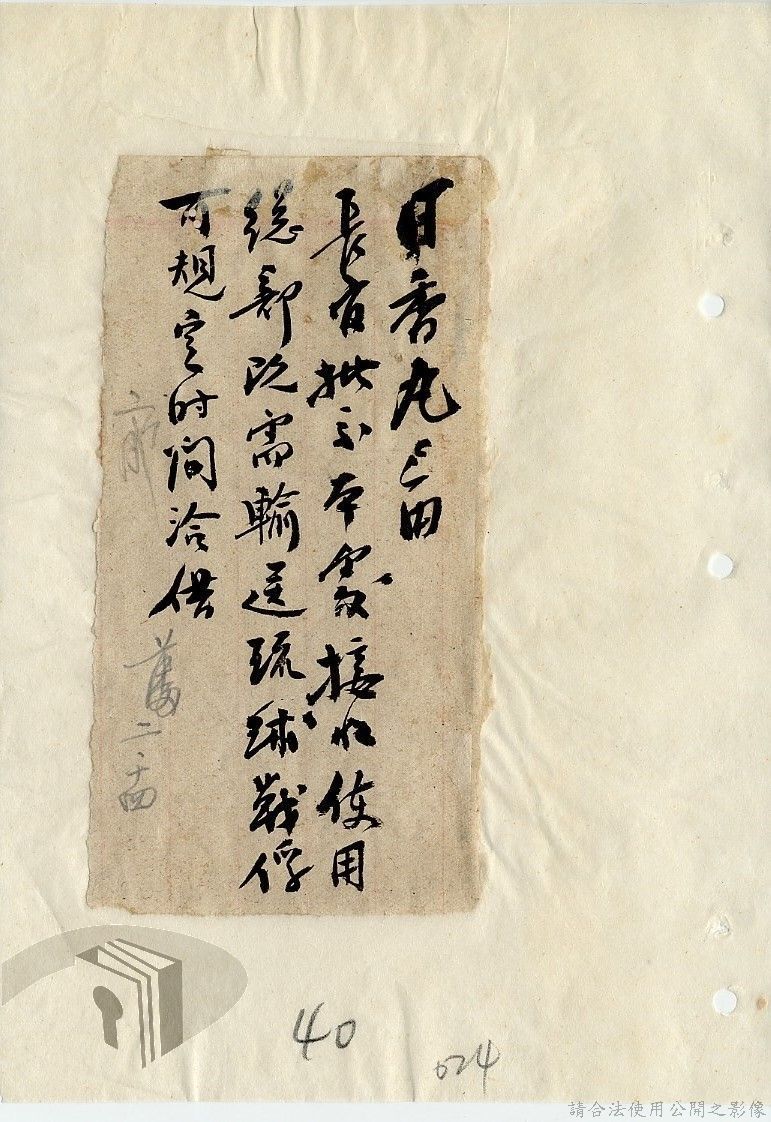 日香丸已由
長官批示本處接收使用
總部既需輸送琉球戰俘
可規定時間洽供
二.十四
40
024
請合法使用公開之影像